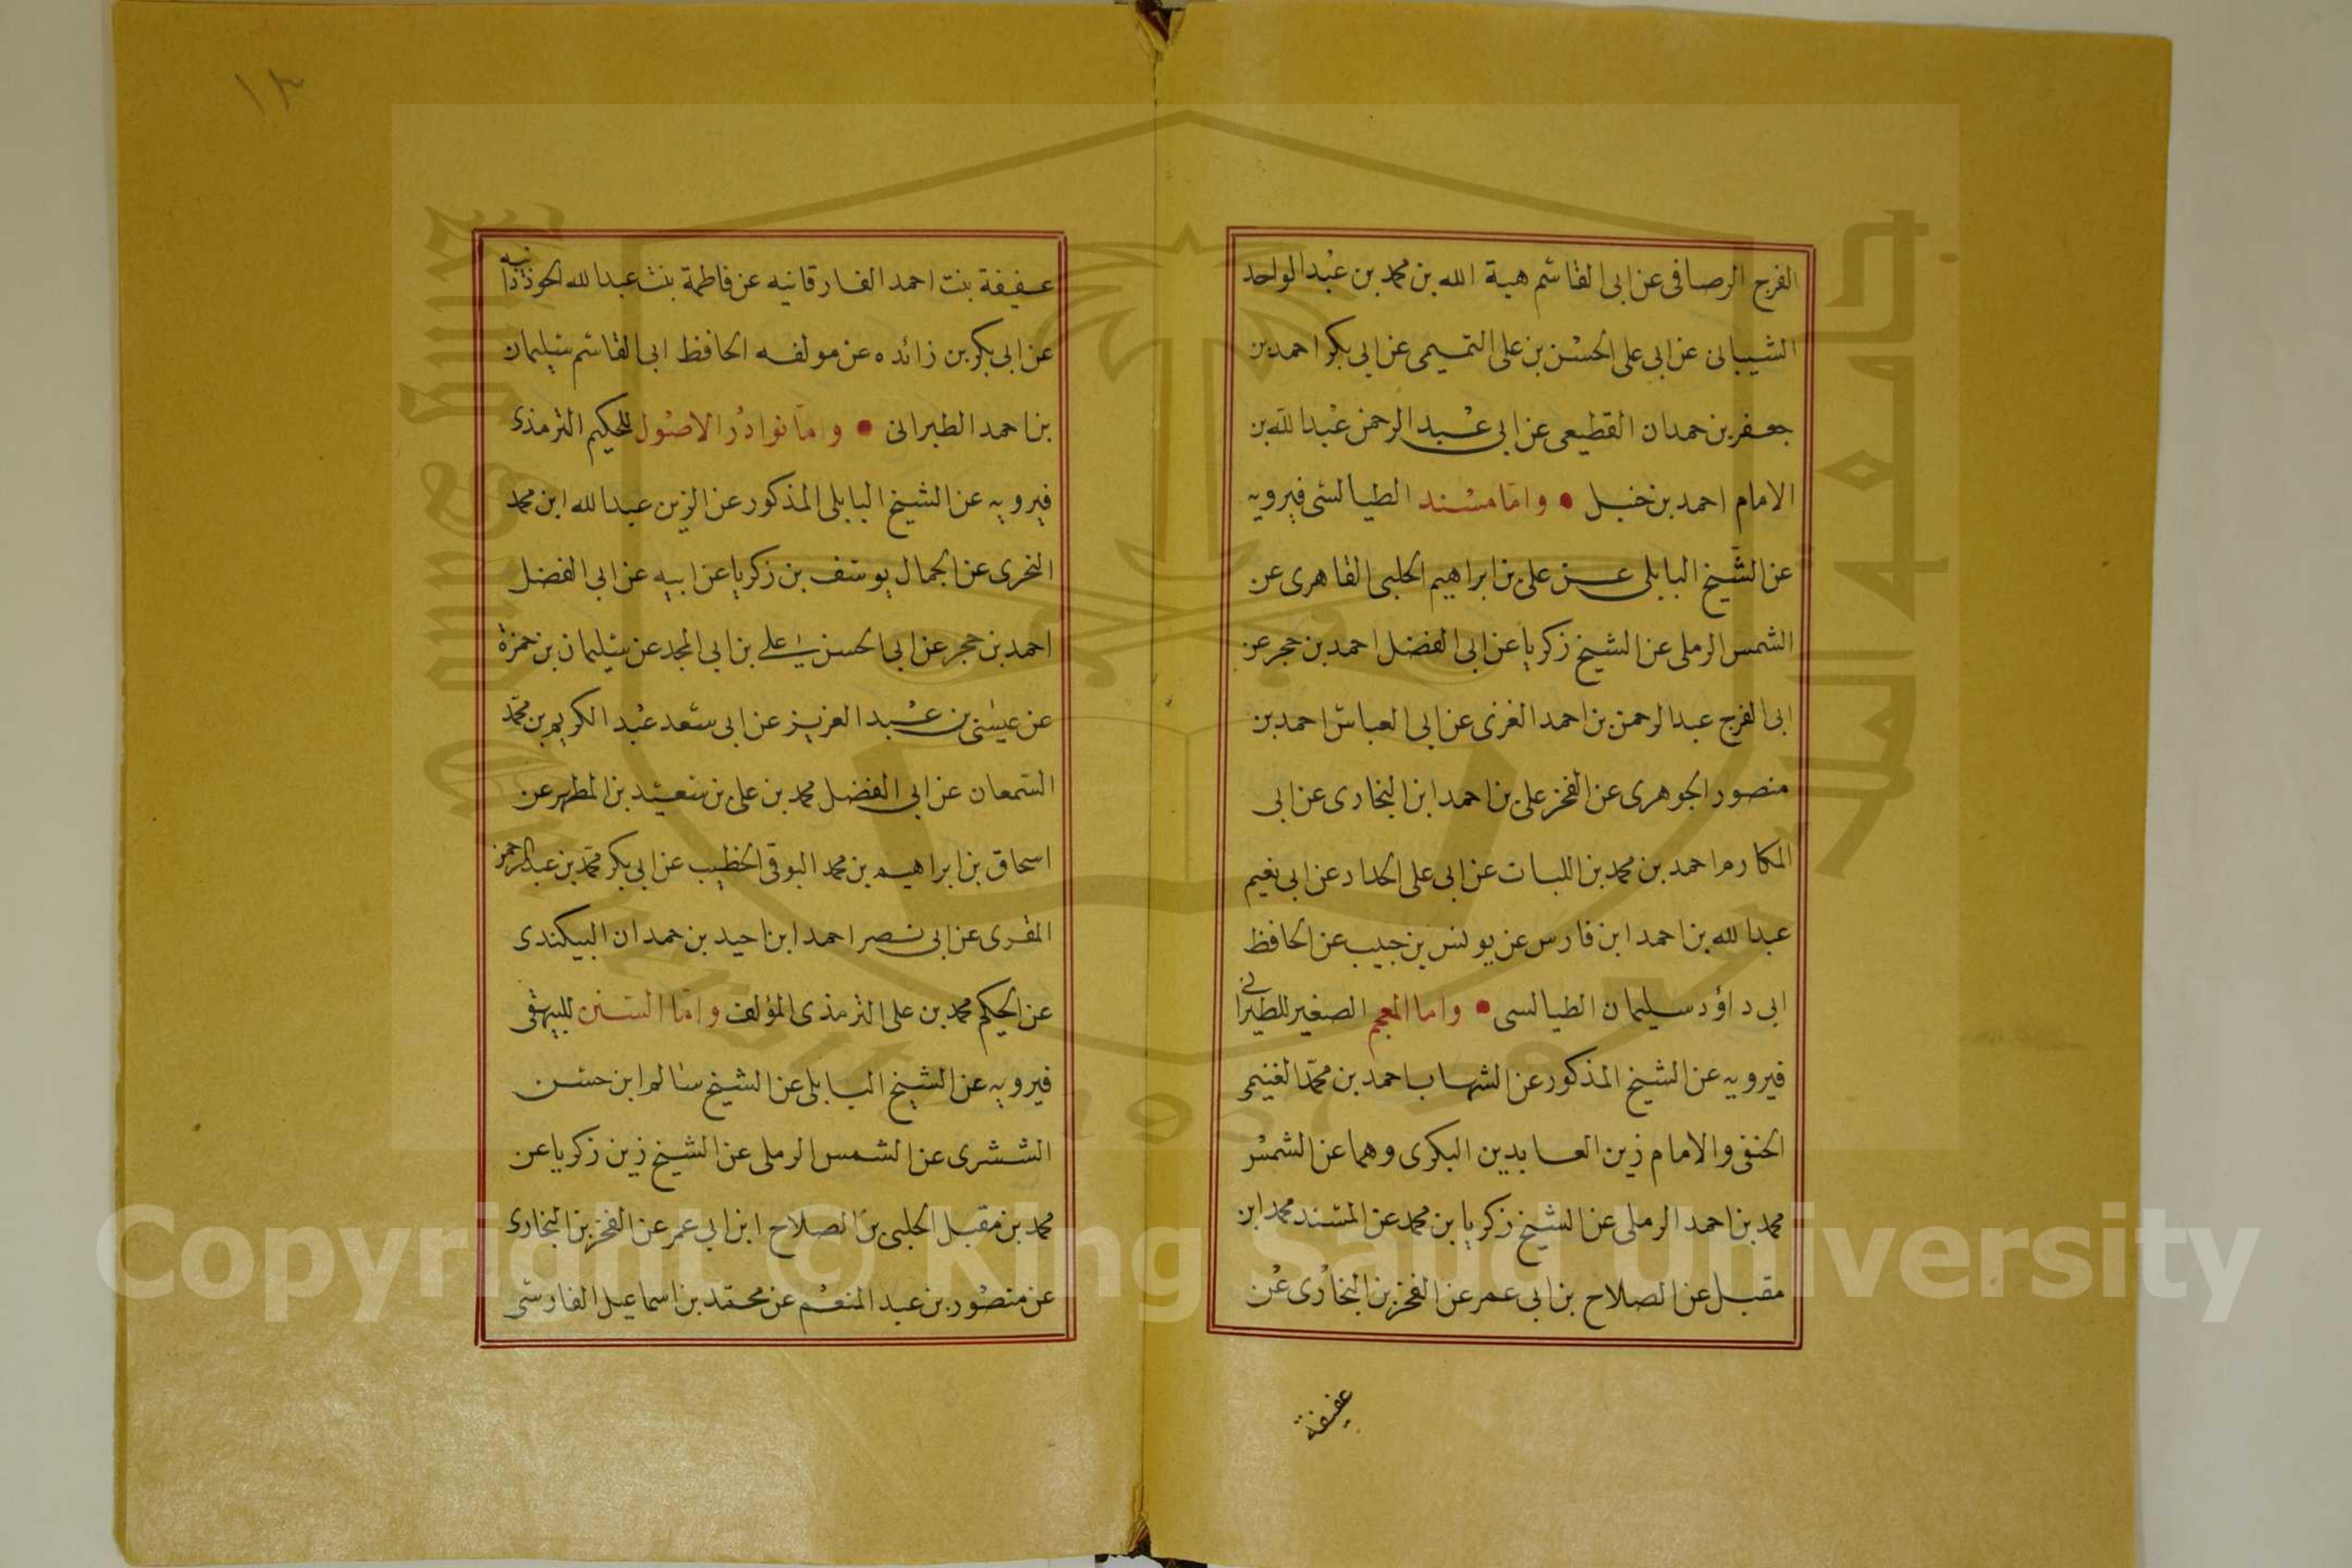 الفرج الرصافى عن ابى القاسم هبة الله بن محمد بن عبد الواحد
الشيبانى عن ابى على الحسن بن على التميمى عن ابى بكر احمد بن
جعفر بن حمدان القطيعى عن ابى عبد الرحمن عبد الله بن
الامام احمد بن حنبل • واما مسند الطيالسى فيرويه
عن الشيخ البابلى عن على بن ابراهيم الحلبى القاهرى عن
الشمس الرملى عن الشيخ زكريا عن ابى الفضل احمد بن حجر عن
ابى الفرج عبد الرحمن بن احمد الغزى عن ابى العباس احمد بن
منصور الجوهرى عن الفخر على بن احمد ابن البخارى عن ابى
المكارم احمد بن محمد بن اللبات عن ابى على الحداد عن ابى نعيم
عبد الله بن احمد ابن فارس عن يونس بن حبيب عن الحافظ
ابى داؤد سليمان الطيالسى • واما المعجم الصغير للطبرانى
فيرويه عن الشيخ المذكور عن الشهاب احمد بن محمد الغنيمى
الحنفى والامام زين العابدين البكرى وهما عن الشمس
محمد بن احمد الرملى عن الشيخ زكريا بن محمد عن المسند محمد ابن
مقبل عن الصلاح بن ابى عمر عن الفخر بن البخارى عن
عفيفة
١٣
عفيفة بنت احمد الفارقانيه عن فاطمة بنت عبد الله الجوذذانيه
عن ابى بكر بن زائده عن مولفه الحافظ ابى القاسم سليمان
بن احمد الطبرانى • واما نوادر الاصول للحكيم الترمذى
فيرويه عن الشيخ البابلى المذكور عن الزين عبد الله ابن محمد
النحرى عن الجمال يوسف بن زكريا عن ابيه عن ابى الفضل
احمد بن حجر عن ابى الحسن على بن ابى المجد عن سليمان بن حمزة
عن عيسى بن عبد العزيز عن ابى سعد عبد الكريم بن محمد
السمعان عن ابى الفضل محمد بن على بن سعيد بن المطهر عن
اسحاق بن ابراهيم بن محمد البوقى الخطيب عن ابى بكر محمد بن عبد الرحمن
المقرى عن ابى نصر احمد ابن احيد بن حمدان البيكندى
عن الحكيم محمد بن على الترمذى المؤلف واما السنن للبيهقى
فيرويه عن الشيخ البابلى عن الشيخ سالم ابن حسن
الششرى عن الشمس الرملى عن الشيخ زين زكريا عن
محمد بن مقبل الحلبى بن الصلاح ابن ابى عمر عن الفخر بن البخارى
عن منصور بن عبد المنعم عن محمد بن اسماعيل الفارسى
Copyright © King Saud University
King Saud University
جامعة الملك سعود
1957